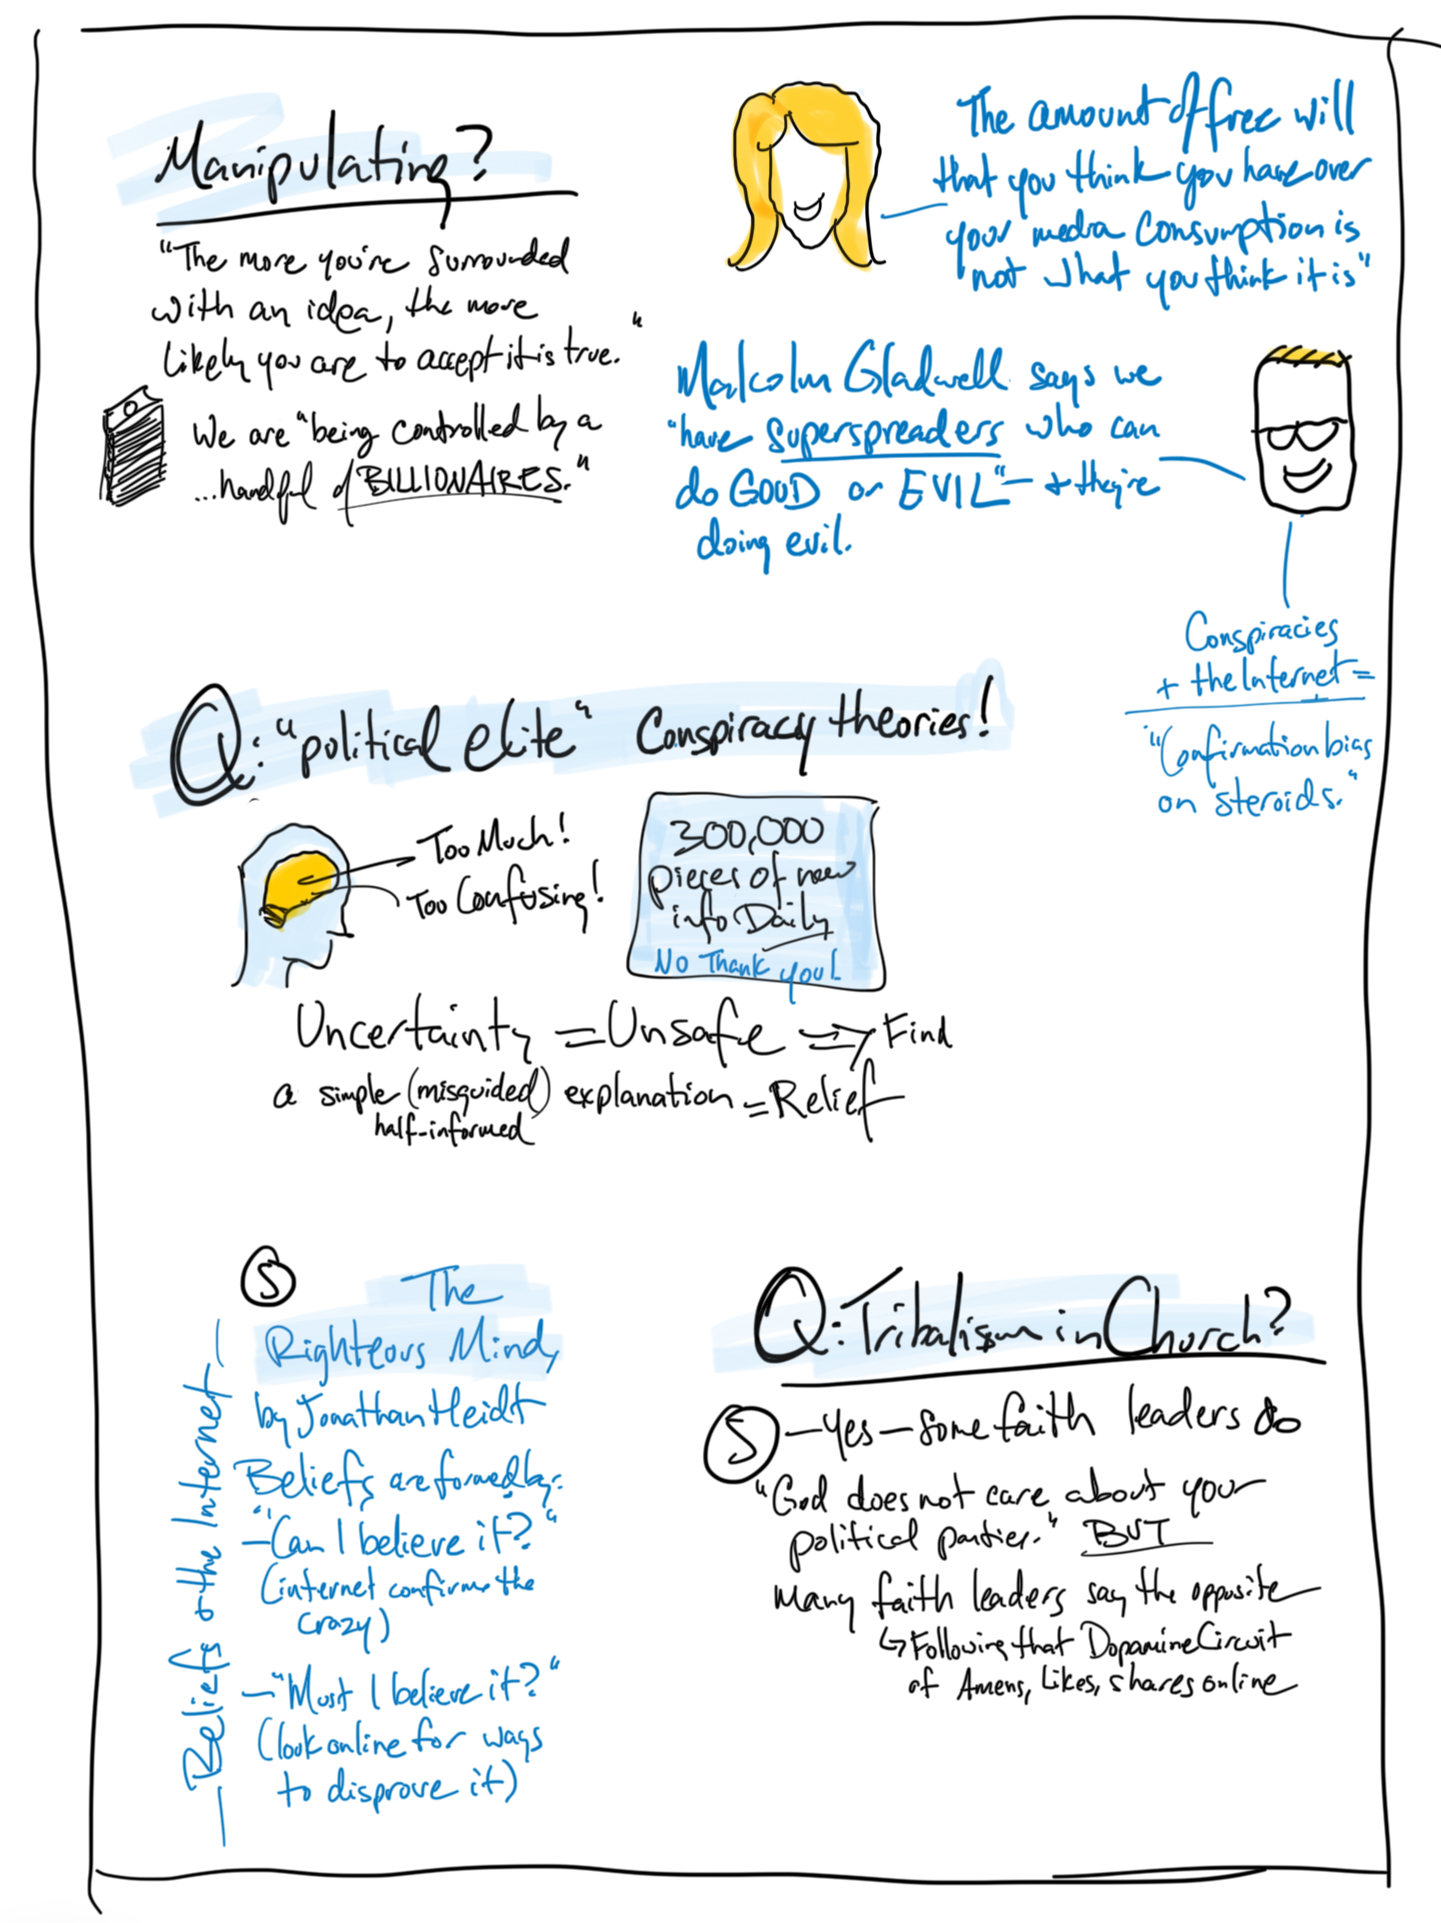 Manipulating?
"The more you're surrounded
with an idea, the more
likely you are to accept it is true."
We are "being controlled by a
...handful of BILLIONAIRES."
The amount of free will
that you think you have over
your media consumption is
not what you think it is"
Malcolm Gladwell says we
"have superspreaders who can
do GOOD or EVIL" — + they're
doing evil.
Conspiracies
+ the Internet =
"Confirmation bias
on steroids."
Q: "political elite" Conspiracy theories!
Too Much!
Too Confusing!
300,000
pieces of new
info Daily
No Thank you!
Uncertainty = Unsafe => Find
a simple (misguided) explanation = Relief
half-informed
S
The
Righteous Mind,
by Jonathan Heidt
Beliefs are formed by:
— "Can I believe it?"
(internet confirms the
crazy)
— "Must I believe it?"
(look online for ways
to disprove it)
— Beliefs + the Internet —
Q: Tribalism in Church?
S — yes — some faith leaders do
"God does not care about your
political parties." BUT
Many faith leaders say the opposite
↳ Following that Dopamine Circuit
of Amens, Likes, shares online